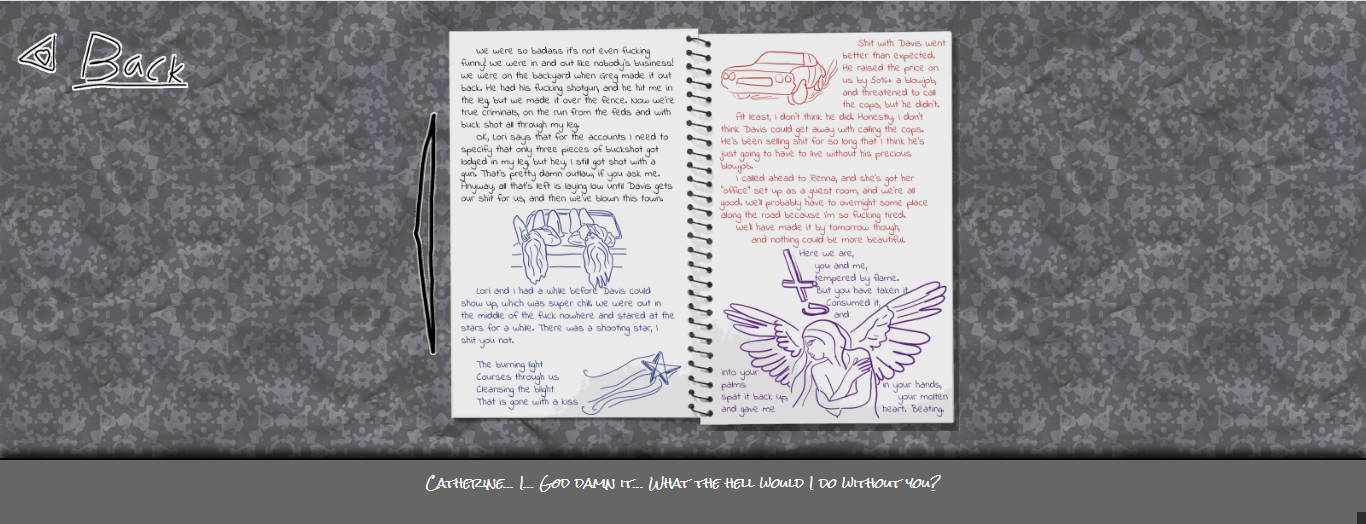 Back
We were so badass it's not even fucking
funny! We were in and out like nobody's business!
We were on the backyard when Greg made it out
back. He had his fucking shotgun, and he hit me in
the leg but we made it over the fence. Now we're
true criminals, on the run from the feds and with
buck shot all through my leg.
OK, Lori says that for the accounts I need to
specify that only three pieces of buckshot got
lodged in my leg, but hey, I still got shot with a
gun. That's pretty damn outlaw, if you ask me.
Anyway, all that's left is laying low until Davis gets
our shit for us, and then we've blown this town.
Lori and I had a while before Davis could
show up, which was super chill. We were out in
the middle of the fuck nowhere and stared at the
stars for a while. There was a shooting star, I
shit you not.
The burning light
Courses through us
Cleansing the blight
That is gone with a kiss
Shit with Davis went
better than expected.
He raised the price on
us by 50%+ a blowjob,
and threatened to call
the cops, but he didn't.
At least, I don't think he did. Honestly, I don't
think Davis could get away with calling the cops.
He's been selling shit for so long that I think he's
just going to have to live without his precious
blowjob.
I called ahead to Renna, and she's got her
"office" set up as a guest room, and we're all
good. We'll probably have to overnight some place
along the road because I'm so fucking tired.
We'll have made it by tomorrow though,
and nothing could be more beautiful.
Here we are,
you and me,
tempered by flame.
But you have taken it.
Consumed it,
and
into your
palms
spat it back up,
and gave me
in your hands,
your molten
heart. Beating.
Catherine... I... God damn it... What the hell would I do without you?